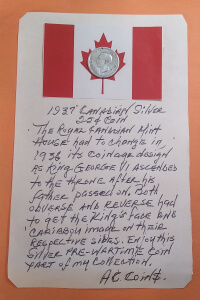 1937 Canadian Silver
25¢ Coin
The Royal Canadian Mint
House had to change in
1936 its coinage design
as King George VI ascended
to the throne after his
father passed on. Both
obverse and reverse had
to get the King's face and
Caribou image on their
respective sides. Enjoy this
silver pre-wartime coin
part of my collection.
A.C. Coins